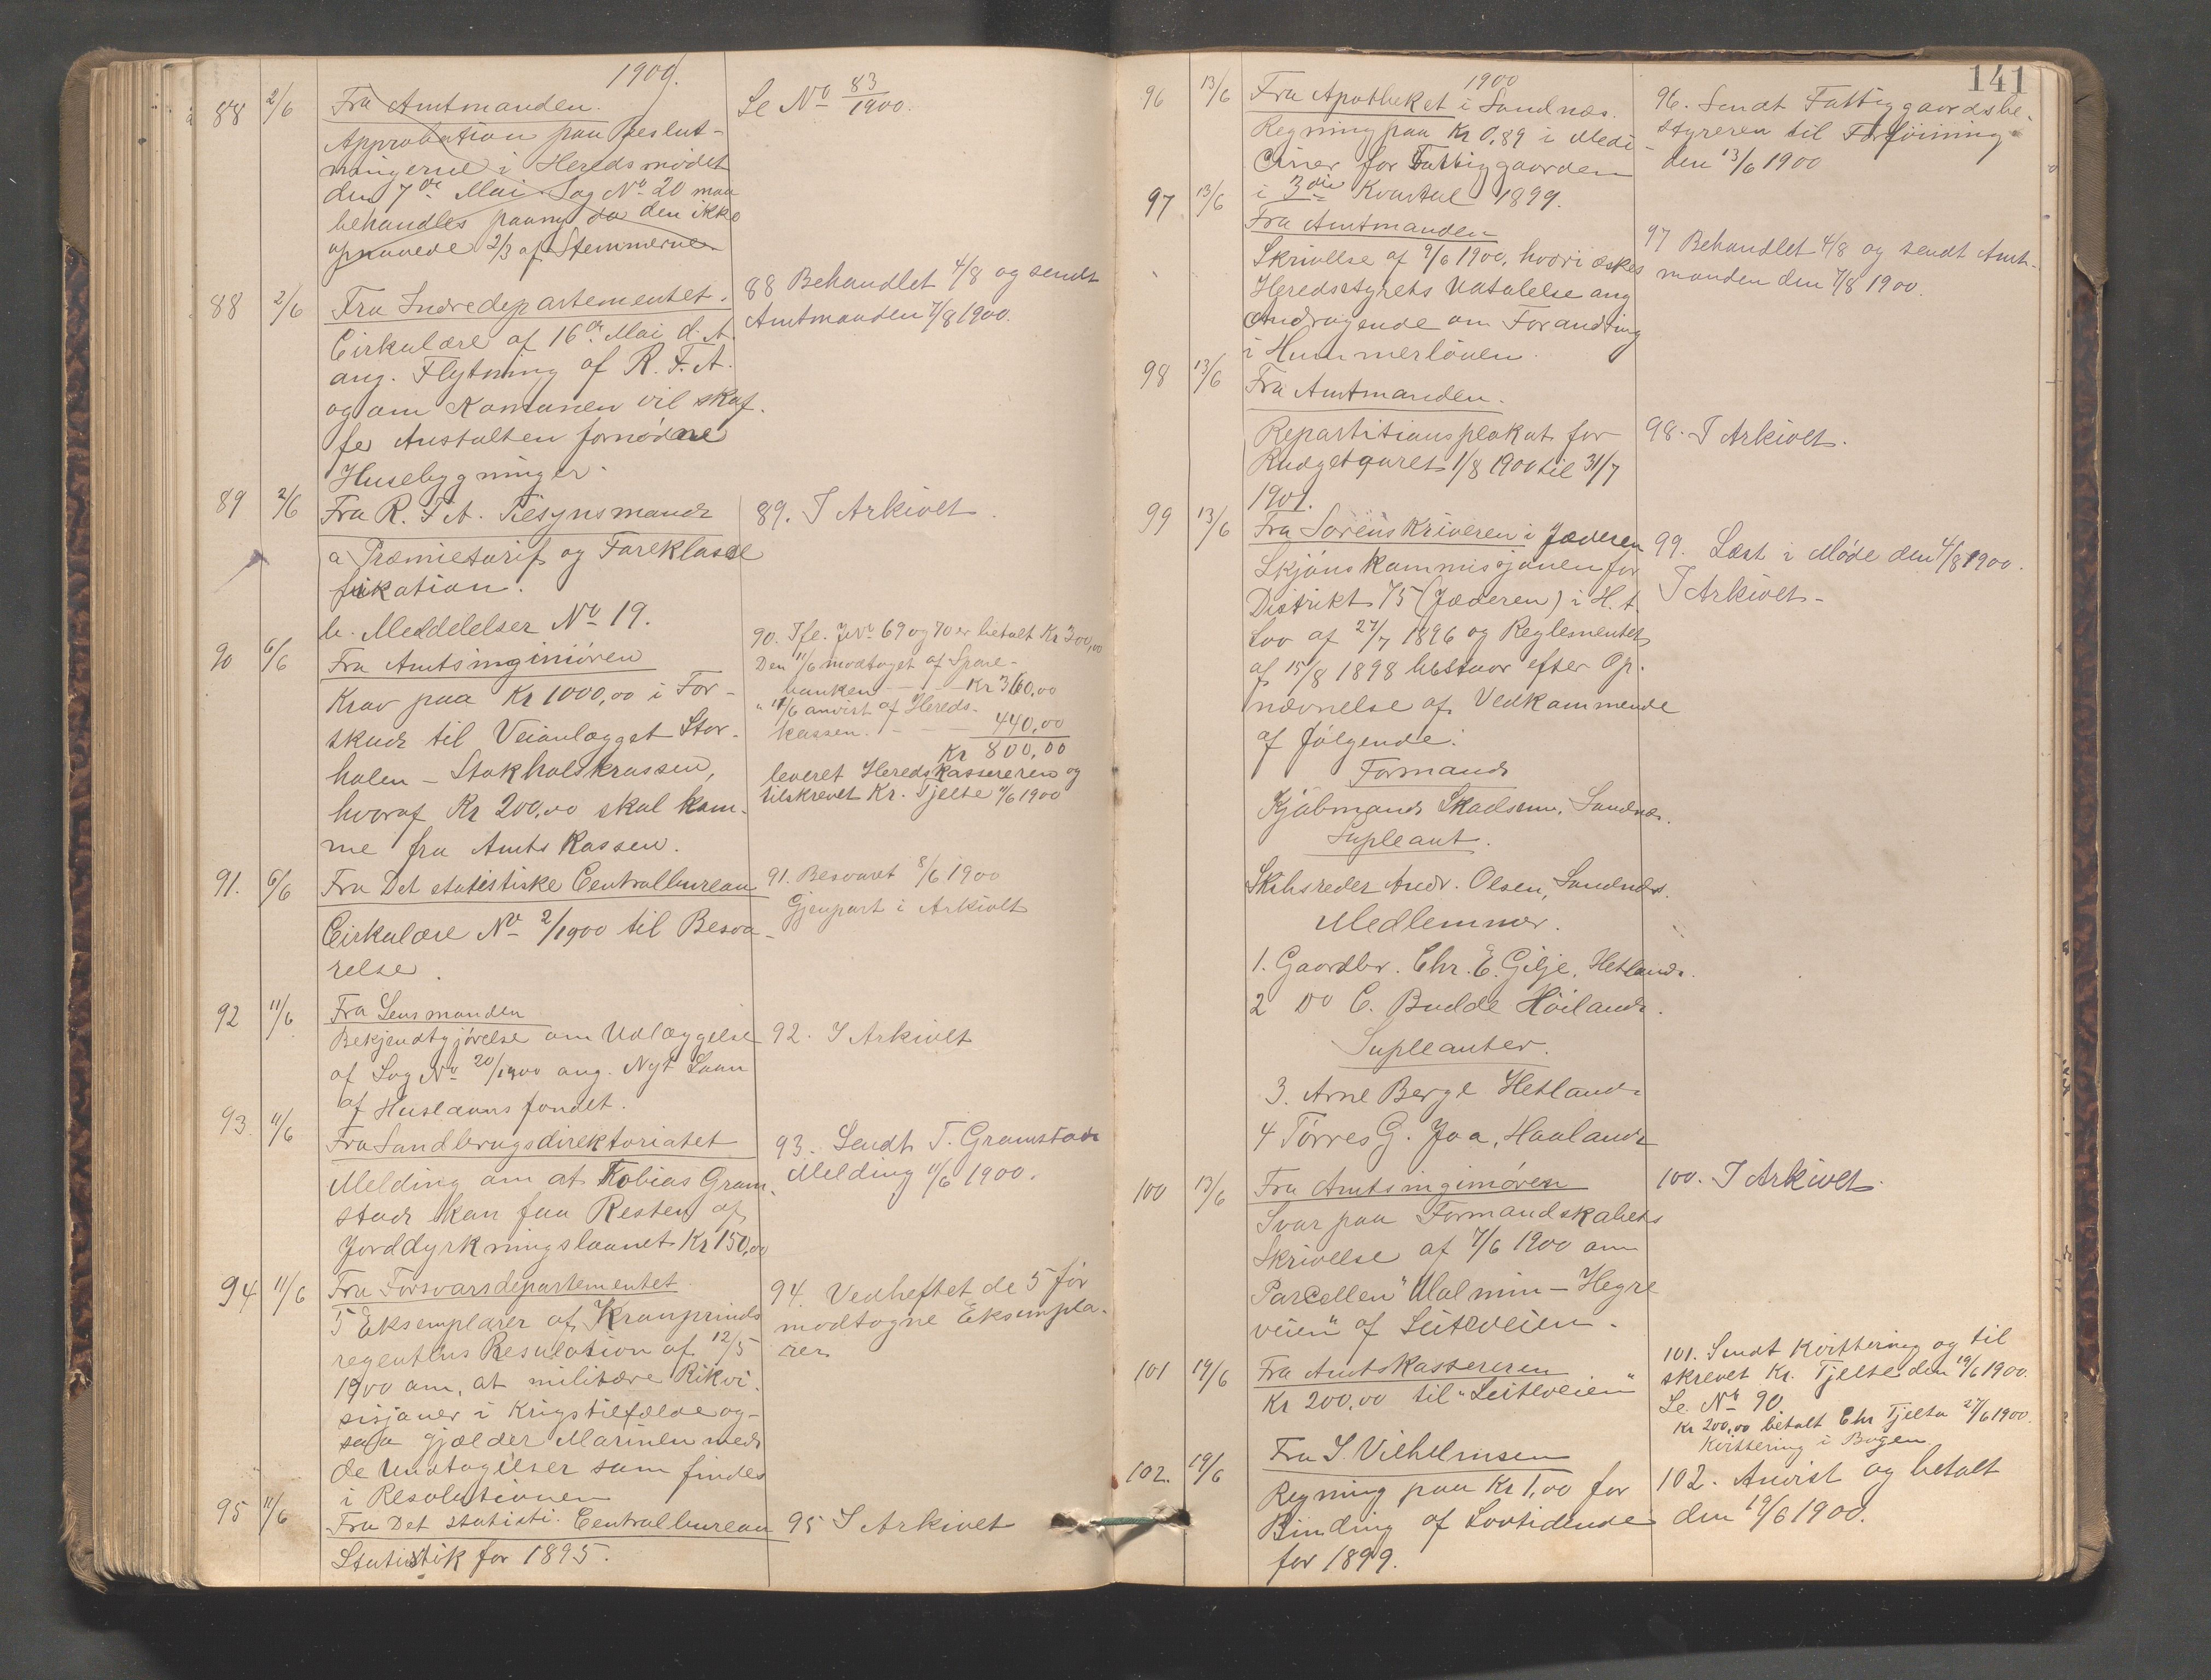 1900.
88 2/6 Fra Amtmanden.
Approbation paa Beslut-
ningerne i Heredsmødet
den 7de Mai. Sag No 20 maa
behandles paany da den ikke
opnaaede 2/3 af Stemmerne
Se No 83/1900.
88 2/6 Fra Indredepartementet.
Cirkulære af 16de Mai d. A.
ang. Flytning af R. F. A.
og om Komunen vil skaf-
fe Anstalten fornødne
Husebygninger.
88 Behandlet 4/8 og sendt
Amtmanden 7/8 1900.
89 2/6 Fra R. F. A. Tilsynsmand
a Præmietarif og Fareklasse
fikation.
b. Meddelelser No 19.
89. I Arkivet.
90 6/6 Fra Amtsingeniøren
Krav paa Kr 1000,00 i For-
skud til Veianlægget Stor-
halen - Stokholskrossen,
hvoraf Kr 200,00 skal kom-
me fra Amtskassen.
90. Ifl. JNo 69 og 70 er betalt Kr 300,00
Den 11/6 modtaget af Spare-
banken - - - Kr 360,00
" 11/6 anvist af Hereds-
kassen. - - - 440,00
Kr 800,00
leveret Heredskassereren og
tilskrevet Kr. Tjelte 11/6 1900
91. 6/6 Fra Det statistiske Centralbureau
Cirkulære No 2/1900 til Besva-
relse.
91. Besvaret 8/6 1900
Gjenpart i Arkivet
92 11/6 Fra Lensmanden
Bekjendtgjørelse om Udlæggelse
af Sag No 20/1900 ang. Nyt Laan
af Huslaansfondet.
92. I Arkivet
93. 11/6 Fra Landbrugsdirektoriatet
Melding om at Tobias Gram-
stad kan faa Resten af
Jorddyrkningslaanet Kr 150,00
93. Sendt T. Gramstad
Melding 11/6 1900.
94 11/6 Fra Forsvarsdepartementet
5 Eksemplarer af Kronprinds
regentens Resolution af 12/5
1900 om, at militære Rikvi-
sisjoner i Krigstilfælde og-
saa gjælder Marinen med
de Undtagelser som findes
i Resolutionen
94. Vedheftet de 5 før
modtagne Eksempla-
rer
95 11/6 Fra Det statisti. Centralbureau
Statistik for 1895.
95 I Arkivet
141
1900
96 13/6 Fra Apotheket i Sandnæs.
Regning paa Kr 0,89 i Medi-
ciner for Fattiggaarden
i 3die Kvartal 1899.
96. Sendt Fattiggaardsbe-
styreren til Forføining
den 13/6 1900
97 13/6 Fra Amtmanden
Skrivelse af 9/6 1900, hvori æskes
Heredsstyrets Udtalelse ang
Andragende om Forandring
i Hummerloven.
97 Behandlet 4/8 og sendt Amt-
manden den 7/8 1900.
98 13/6 Fra Amtmanden.
Repartitionsplakat for
Budgetaaret 1/8 1900 til 31/7
1901.
98. I Arkivet.
99 13/6 Fra Sorenskriveren i Jæderen
Skjønskommisjonen for
Distrikt 75 (Jæderen) i H. t.
Lov af 27/7 1896 og Reglementet
af 15/8 1898 bestaar efter Op-
nævnelse af Vedkommende
af følgende:
Formand
Kjøbmand Skadsem, Sandnæs.
Supleant.
Skibsreder Andr. Olsen, Sandnæs.
Medlemmer.
1. Gaardbr. Chr. E. Gilje, Hetland.
2 Do C. Budde Høiland.
Supleanter.
3. Arne Berge Hetland
4 Torres G. Joa, Haaland
99. Læst i Møde den 4/8 1900.
I Arkivet-
100 13/6 Fra Amtsingeniøren
Svar paa Formandskabets
Skrivelse af 7/6 1900 om
Parcellen "Malmin - Hegre
veien" af Leiteveien.
100. I Arkivet.
101 19/6 Fra Amtskassereren
Kr 200,00 til "Leiteveien"
101. Sendt Kvittering og til
skrevet Kr. Tjelte den 19/6 1900.
Se No 90.
Kr 200,00 betalt Chr Tjelta 27/6 1900.
Kvittering i Bogen
102. 19/6 Fra S. Vilhelmsen
Regning paa Kr 1,00 for
Binding af Lovtidende
for 1899.
102. Anvist og betalt
den 19/6 1900.